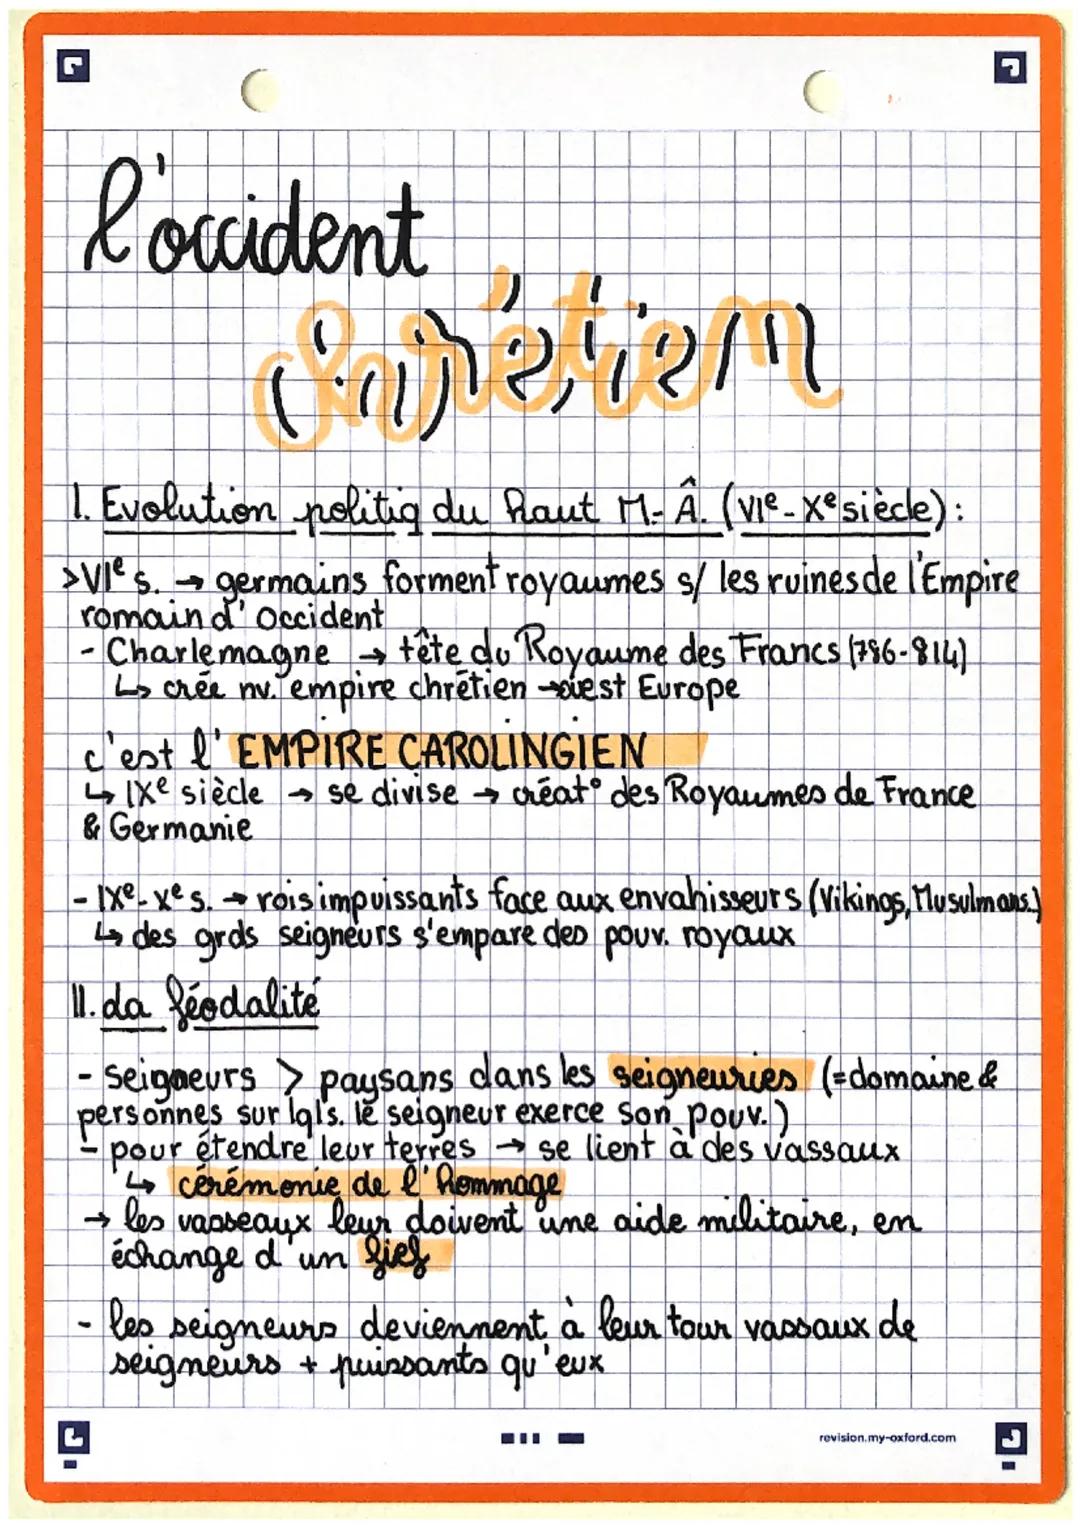 l'occident
chrétien
I. Evolution politiq du haut M-Â. (VIe-Xe siècle) :
>VIe s. → germains forment royaumes s/ les ruines de l'Empire
romain d'Occident
- Charlemagne → tête du Royaume des Francs (786-814)
↳ crée nv. empire chrétien → ouest Europe
c'est l'EMPIRE CAROLINGIEN
↳ IXe siècle → se divise → créat° des Royaumes de France
& Germanie
- IXe-Xe s. → rois impuissants face aux envahisseurs (Vikings, Musulmans.)
↳ des grds seigneurs s'empare des pouv. royaux
II. La féodalité
- seigneurs > paysans dans les seigneuries (=domaine &
personnes sur lqls. le seigneur exerce son pouv.)
- pour étendre leur terres → se lient à des vassaux
↳ cérémonie de l'hommage
→ les vasseaux leur doivent une aide militaire, en
échange d'un fief
- les seigneurs deviennent à leur tour vassaux de
seigneurs + puissants qu'eux
revision.my-oxford.com